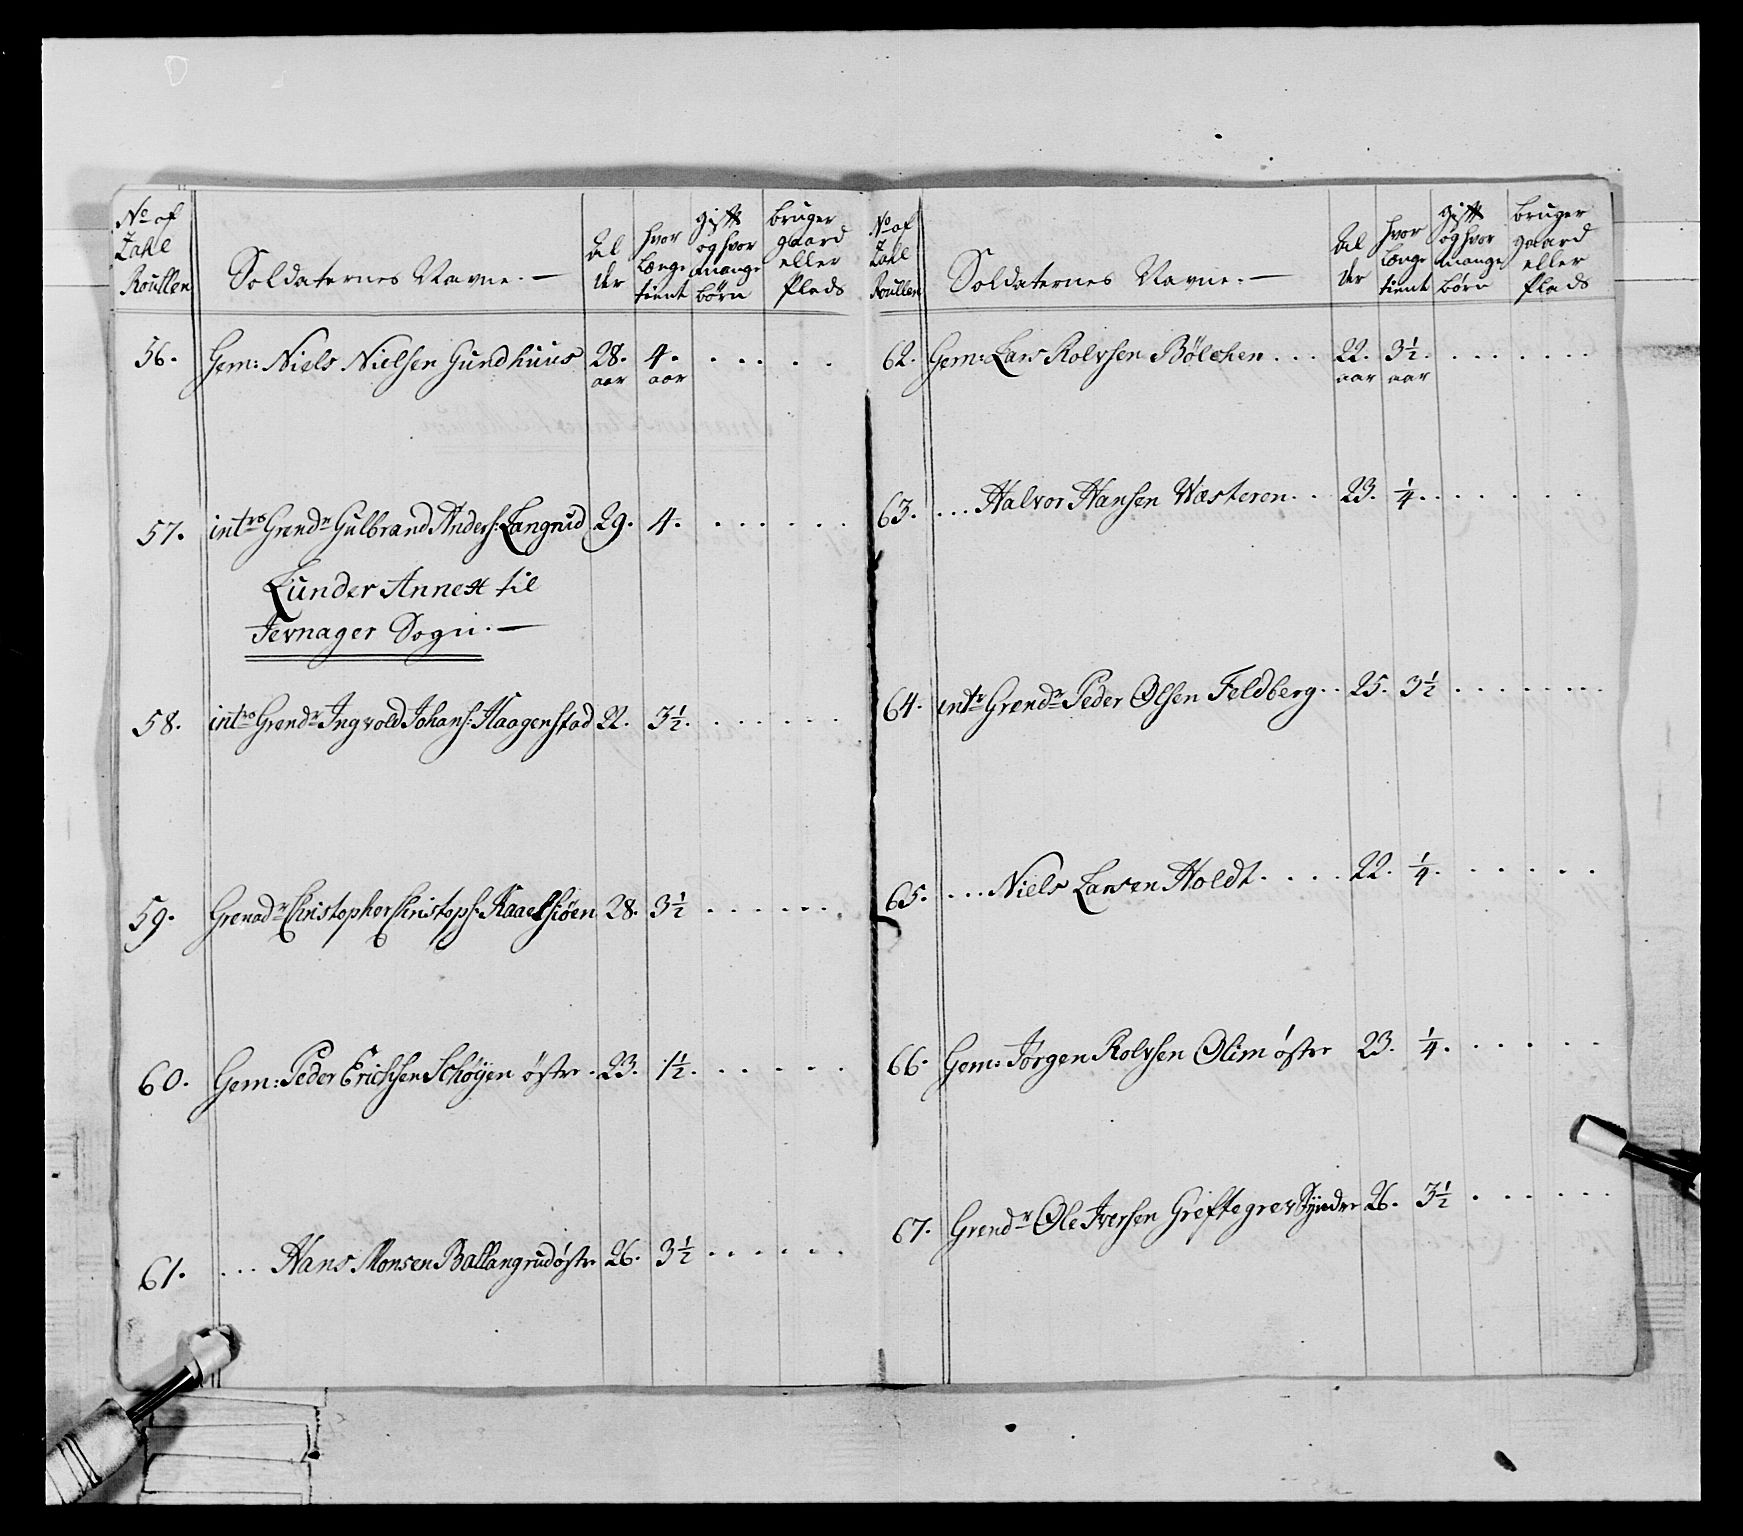 No af Zahl Roullen
Soldaternes Navne. —
Alder
hvor længe tient
gift og hvor mange børn
bruger gaard eller Plads
56. Gem: Niels Nielsen Gundhuus 28. aar 4. aar . . . . .
57. intrs Grendr Gulbrand Anders: Langrud 29. 4. . . . . .
Lunder Annex til
Jevnager Sogn. —
58. intrs Grendr Ingvold Johans: Haagenstad 22. 3½. . . . . .
59. Grenadr Christopher Christoph: 28. 3½ . . . . .
60. Gem: Peder Erichsen Schøyen østre . 23. 1½. . . . . .
61. . . . Hans Monsen Ballangrud østre 26. 3½ . . . . .
No af Zahl Roullen
Soldaternes Navne. —
Alder
hvor længe tient
gift og hvor mange børn
bruger gaard eller Plads
62. Gem: Lars Rolvsen Bølehen . . . 22. aar 3½. aar . . . . .
63. . . . Halvor Hansen Wæsteren . . 23. ¼. . . . . .
64. intr Grendr Peder Olsen Feldberg . . 25. 3½ . . . . .
65. . . . Niels Larsen Holdt . . . . 22. ¼. . . . . .
66. Gem: Jørgen Rolvsen Olim østre 23. ¼. . . . . .
67. Grendr Ole Iversen Greftegrev Syndre 26. 3½ . . . . .